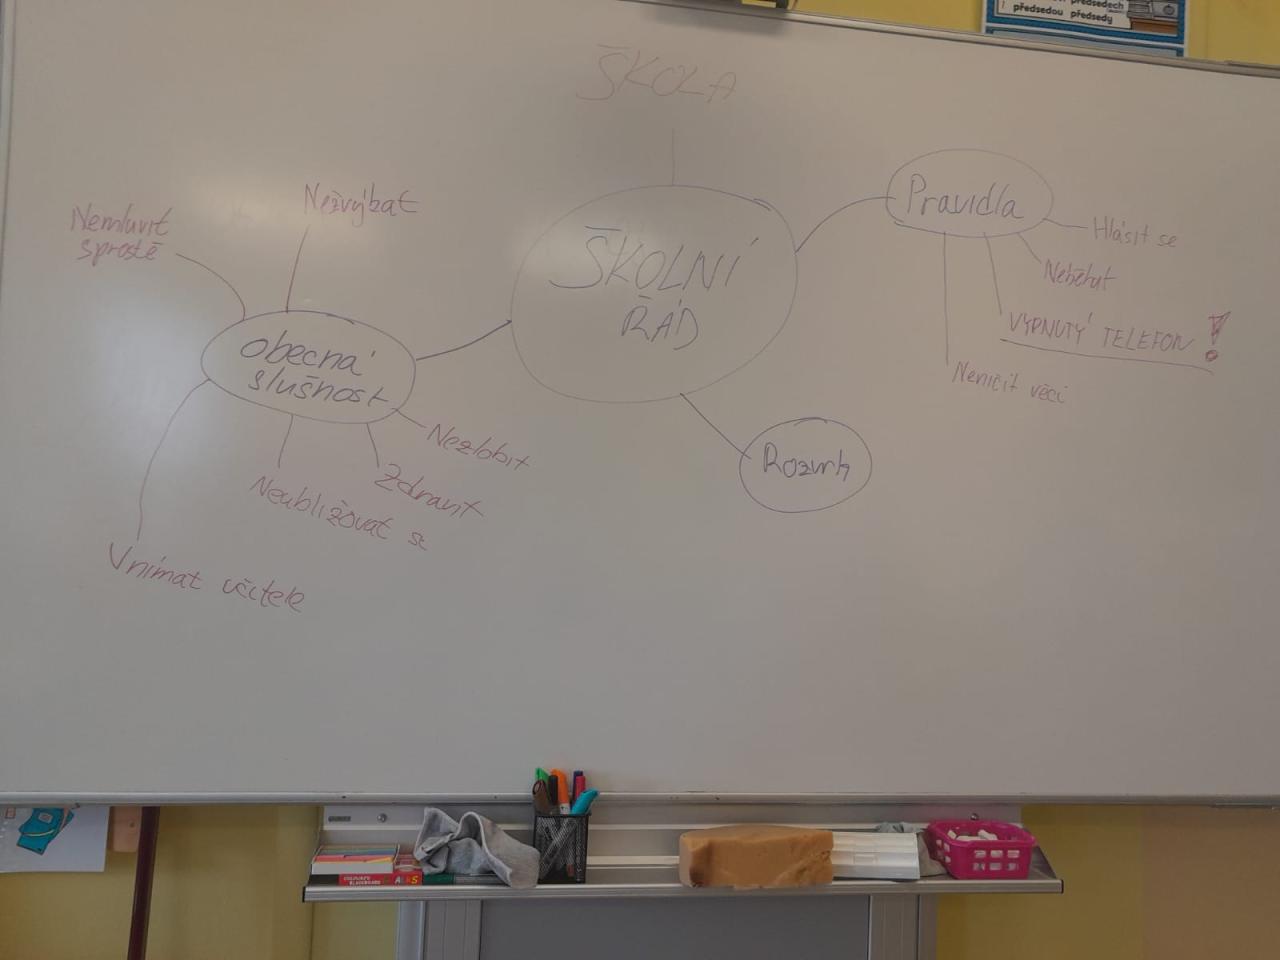 předsedech
předsedou předsedy
ŠKOLA
ŠKOLNÍ
ŘÁD
Pravidla
Hlásit se
Neběhat
VYPNUTÝ TELEFON!
Neničit věci
Nemluvit
sprostě
Nežvýkat
obecná
slušnost
Nezlobit
Zdravit
Neubližovat se
Vnímat učitele